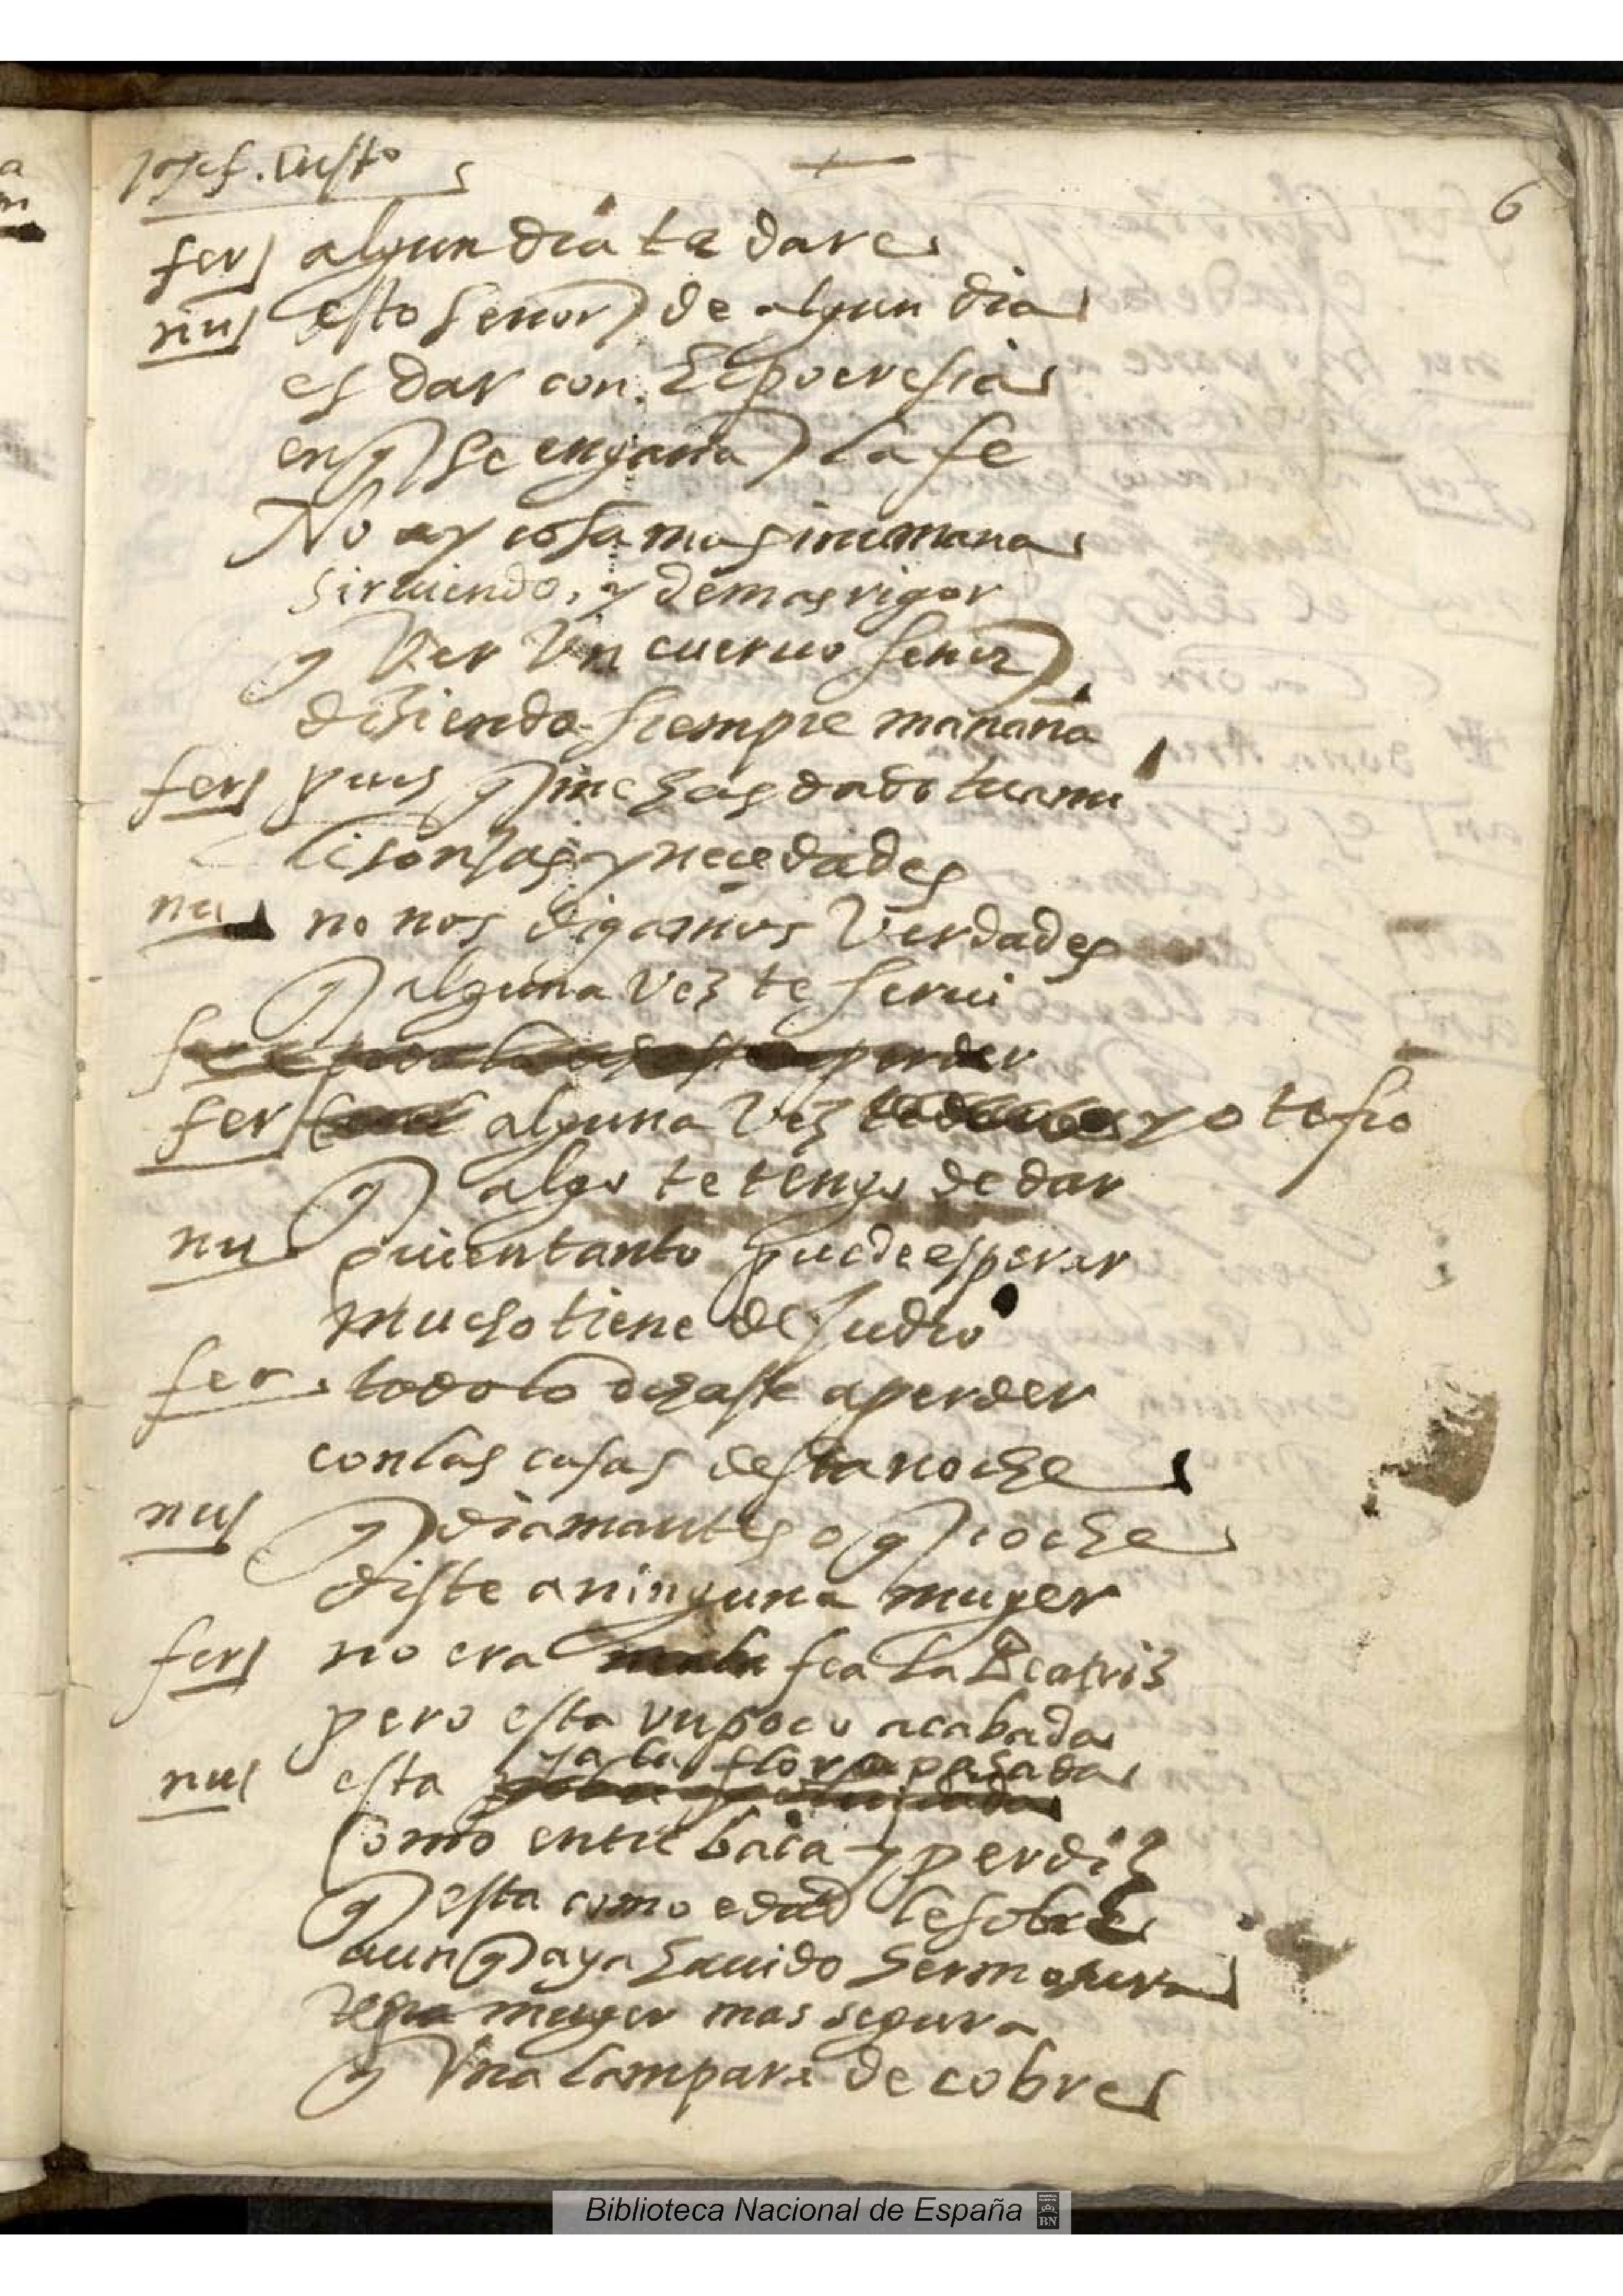 6
fer algun dia te dare
nu esto señor de algun dia
es dar con hipocresia
en q se engaña la fe
No ay cosa mas inumana
sirviendo, y de mas rigor
q ver vn cuervo señor
disiendo siempre mañana
fer pues q me has dado tu a mi
lisonjas y necedades
nu no nos digamos verdades
q alguna vez te serui
perder
fer alguna vez yo te fio
q algo te tengo de dar
nu quien tanto puede esperar
mucho tiene de judio
fer todo lo echaste a perder
con las cosas desta noche
nu q diamantes o q coche
diste a ninguna muger
fer no era fea la Beatriz
pero esta vn poco acabada
ya la flor pasada
nu esta
como entre baca y perdiz
q esta como edad le sobre
aun q aya hauido hermosura
muger mas segura
q vna lampara de cobre
Biblioteca Nacional de España
BN